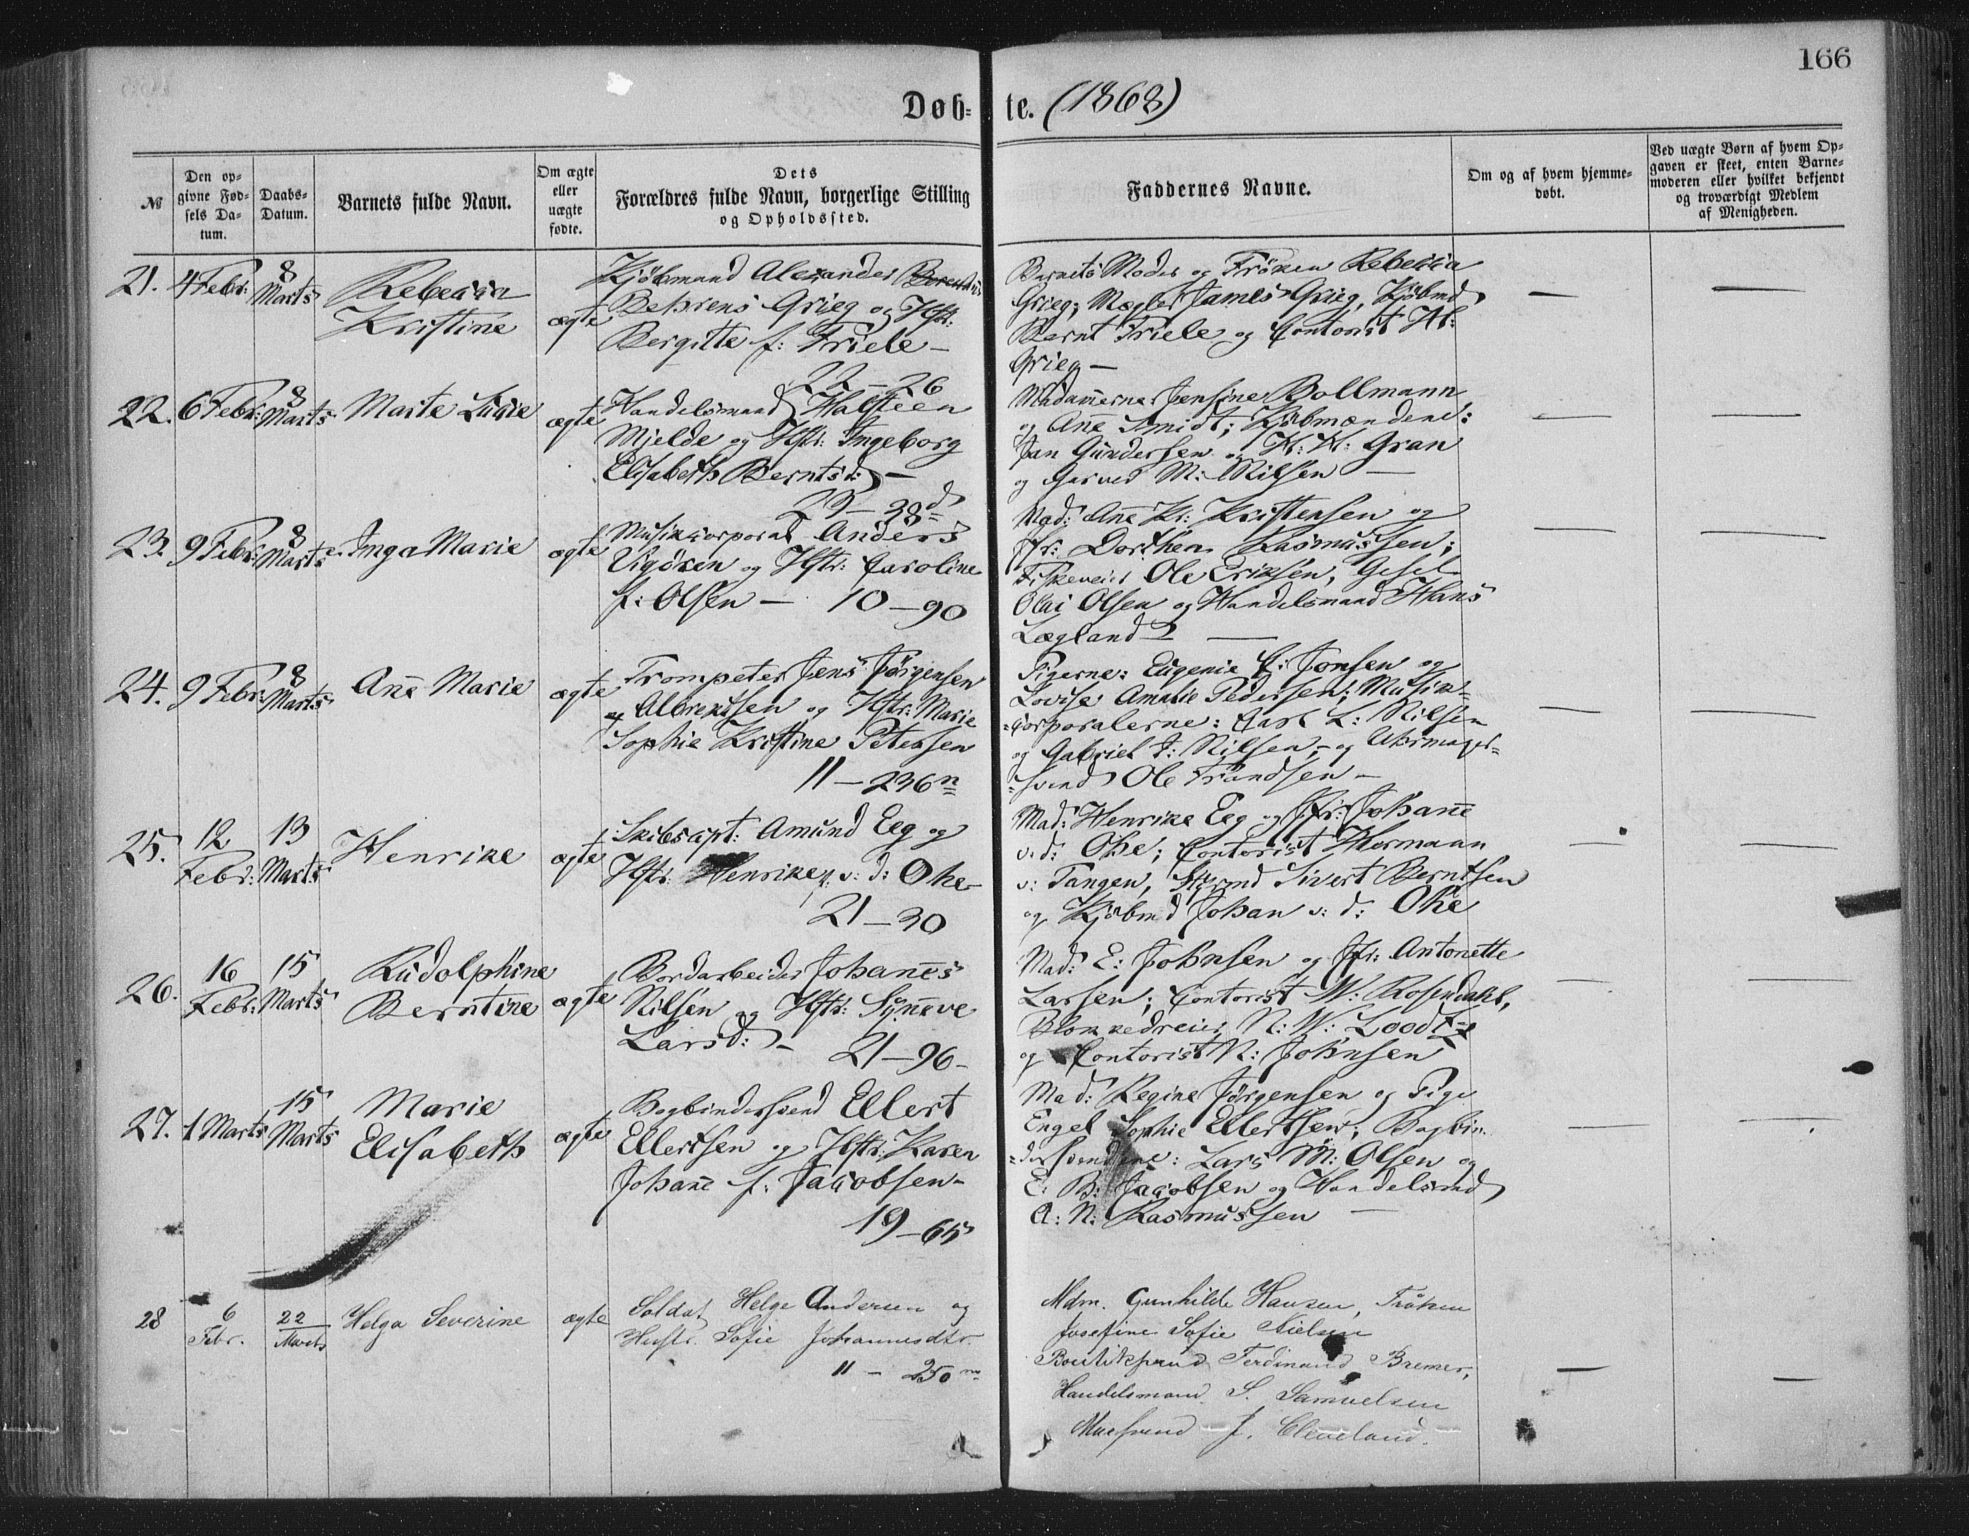 166
Døb-te. (1868)
№
Den op-
givne Fød-
sels Da-
tum.
Daabs-
Datum.
Barnets fulde Navn.
Om ægte
eller
uægte
fødte.
Dets
Forældres fulde Navn, borgerlige Stilling
og Opholdssted.
Faddernes Navne.
Om og af hvem hjemme-
døbt.
Ved uægte Børn af hvem Op-
gaven er skeet, enten Barne-
moderen eller hvilket bekjendt
og troværdigt Medlem
af Menigheden.
21. 4 Febr: 8 Marts
Rebecca
Kristine
ægte
Kjøbmand Alexander
Behrens Grieg og Hstr:
Bergitte f: Friele —
22—26
Barnets Moder og Frøken Rebecca
Grieg; Mægler James Grieg, Kjøbmd
Bernt Friele og Contorist
Grieg —
— —
22. 6 Febr: 8 Marts
Marte Lucie
ægte
Handelsmand Halsteen
Mjelde og Hstr: Ingeborg
Elisabeth Berntsd: —
23—38d
Madamerne Jensine Bollmann
og Ane Smidt; Kjøbmændene:
Jan Gundersen og K: K: Gran
og Garver M: Nilsen —
— —
23. 9 Febr: 8 Marts
Inga Marie
ægte
Musikcorporal Anders
Vigøren og Hstr: Caroline
f: Olsen — 10—90
Mad: Ane Kr: Kristensen og
Jfr: Dorthea Rasmussen;
Ole Eriksen, Gesel
Olai Olsen og Handelsmand Hans
Lægland —
— —
24. 9 Febr: 8 Marts
Ane Marie
ægte
Trompeter Jens Jørgensen
Albrektsen og Hstr: Marie
Sophie Kristine Petersen
11—236n
Pigerne: Eugenie C: Jonsen og
Lovise Amalie Pedersen; Musik-
=corporalerne: Carl L: Nilsen
og Gabriel T: Nilsen, og Uhrmager-
=svend Ole Frandsen —
— —
25. 12 Febr: 13 Marts
Henrike
ægte
Skibscapt: Amund Eeg og
Hstr: Henrike f: v: d: Ohe—
21—30
Mad: Henrike Eeg og Jfr: Johane
v: d: Ohe; Contorist Hermann
v: Tangen, Sivert Berntsen
og Kjøbmd Johan v: d: Ohe
— —
26. 16 Febr: 15 Marts
Rudolphine
Berntine
ægte
Bordarbeider Johanes
Nilsen og Hstr: Syneve
Larsd: — 21—96—
Mad: E: Johnsen og Jfr: Antonette
Larsen; Contorist W: Rosendahl,
Blokkedreier N: W: Loodtz
og Contorist N: Johnsen
— —
27. 1 Marts 15 Marts
Marie
Elisabeth
ægte
Bogbindersvend Ellert
Ellertsen og Hstr: Karen
Johane f: Jacobsen—
19—65
Mad: Regine Jørgensen og Pige
Engel Sophie Ellertsen; Bogbin-
=dersvendene: Lars M: Olsen og
E: B: Jacobsen og Handelsmd
A: N: Rasmussen —
— —
28 6 Febr. 22 Marts
Helga Severine
ægte
Soldat Helge Andersen og
Hustr. Sofie Johannesdtr.
11 — 250 m
Mdm. Gunhilde Hansen, Frøken
Josefine Sofie Nielsen
Boutiksvend Ferdinand Bremer,
Handelsmand S. Samuelsen
J. Cleveland.
— —